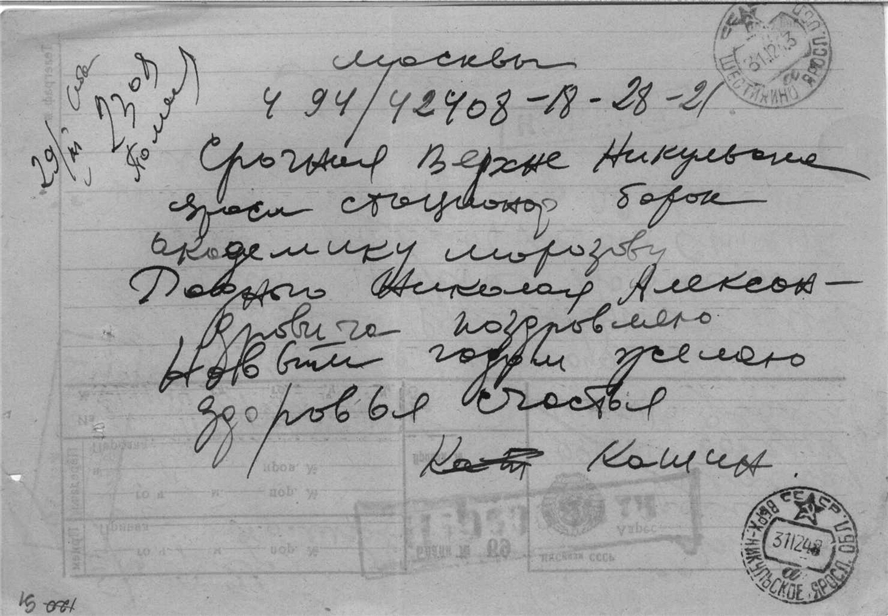 Москвы
4 94/42408-18-28-21
Срочная Верхне Никульское
яросл стационар борок
академику морозову
Дорогого Николая Алексан-
дровича поздравляю
Новым годом желаю
здоровья счастья
Кашин
29/XII
2308
СССР
ШЕСТИХИНО ЯРОСЛ. ОБЛ.
311248
а
СССР
ВЕРХ-НИКУЛЬСКОЕ ЯРОСЛ. ОБЛ.
311248
а
Бланк № 69
Адрес